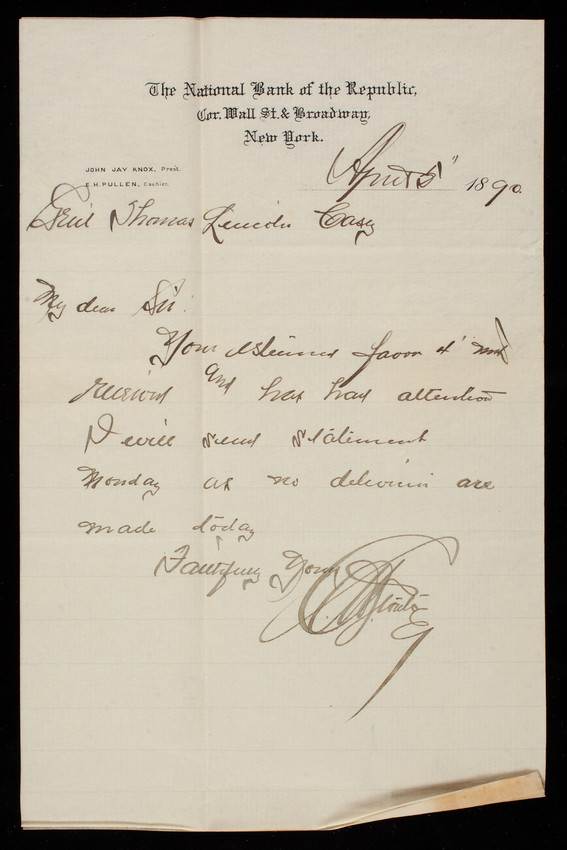 The National Bank of the Republic,
Cor. Wall St. & Broadway,
New York.
JOHN JAY KNOX, Prest.
E.H. PULLEN, Cashier.
April 5" 1890
Genl Thomas Lincoln Casey
My dear Sir:
Your esteemed favor 4" inst
received and has had attention
I will send statement
Monday as no deliveries are
made today
Faithfully Yours